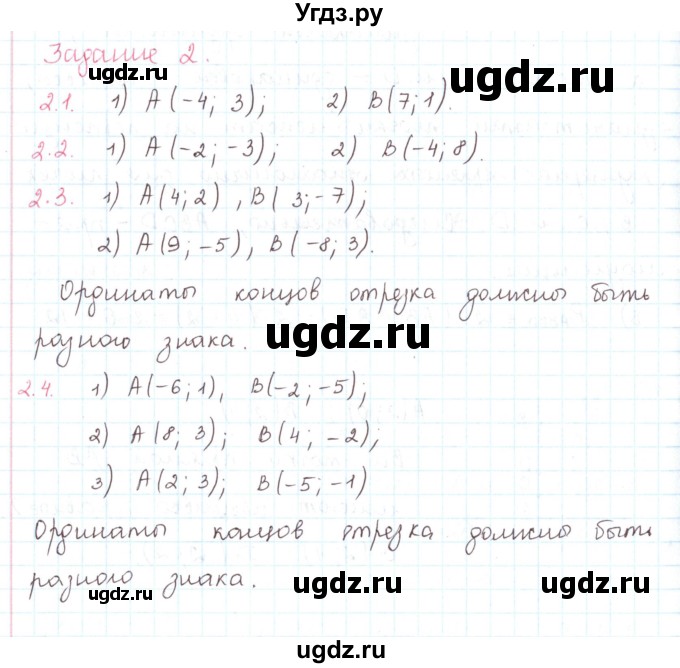 Угдз.ру
Задание 2.
ugdz.ru
ugdz.ru
2.1. 1) A(-4; 3); 2) B(7; 1).
2.2. 1) A(-2; -3); 2) B(-4; 8).
ugdz.ru
ugdz.ru
2.3. 1) A(4; 2), B(3; -7);
2) A(9; -5), B(-8; 3).
Ординаты концов отрезка должны быть
разного знака.
ugdz.ru
ugdz.ru
2.4. 1) A(-6; 1), B(-2; -5);
2) A(8; 3); B(4; -2);
ugdz.ru
ugdz.ru
3) A(2; 3); B(-5; -1)
Ординаты концов отрезка должны быть
разного знака.
ugdz.ru
ugdz.ru
ugdz.ru